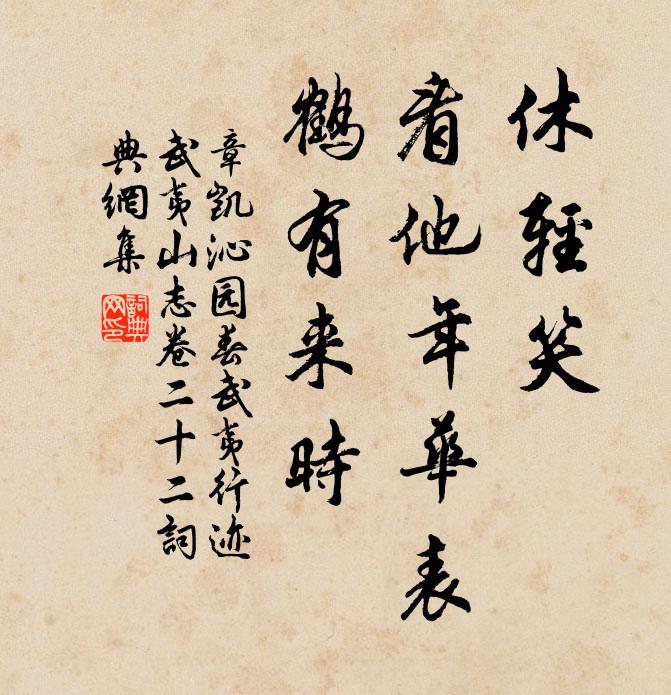 休輕笑
看他年華表
鶴有来時
章凯沁园春武夷行迹
武夷山志卷二十二詞
典網集
詞典
网印